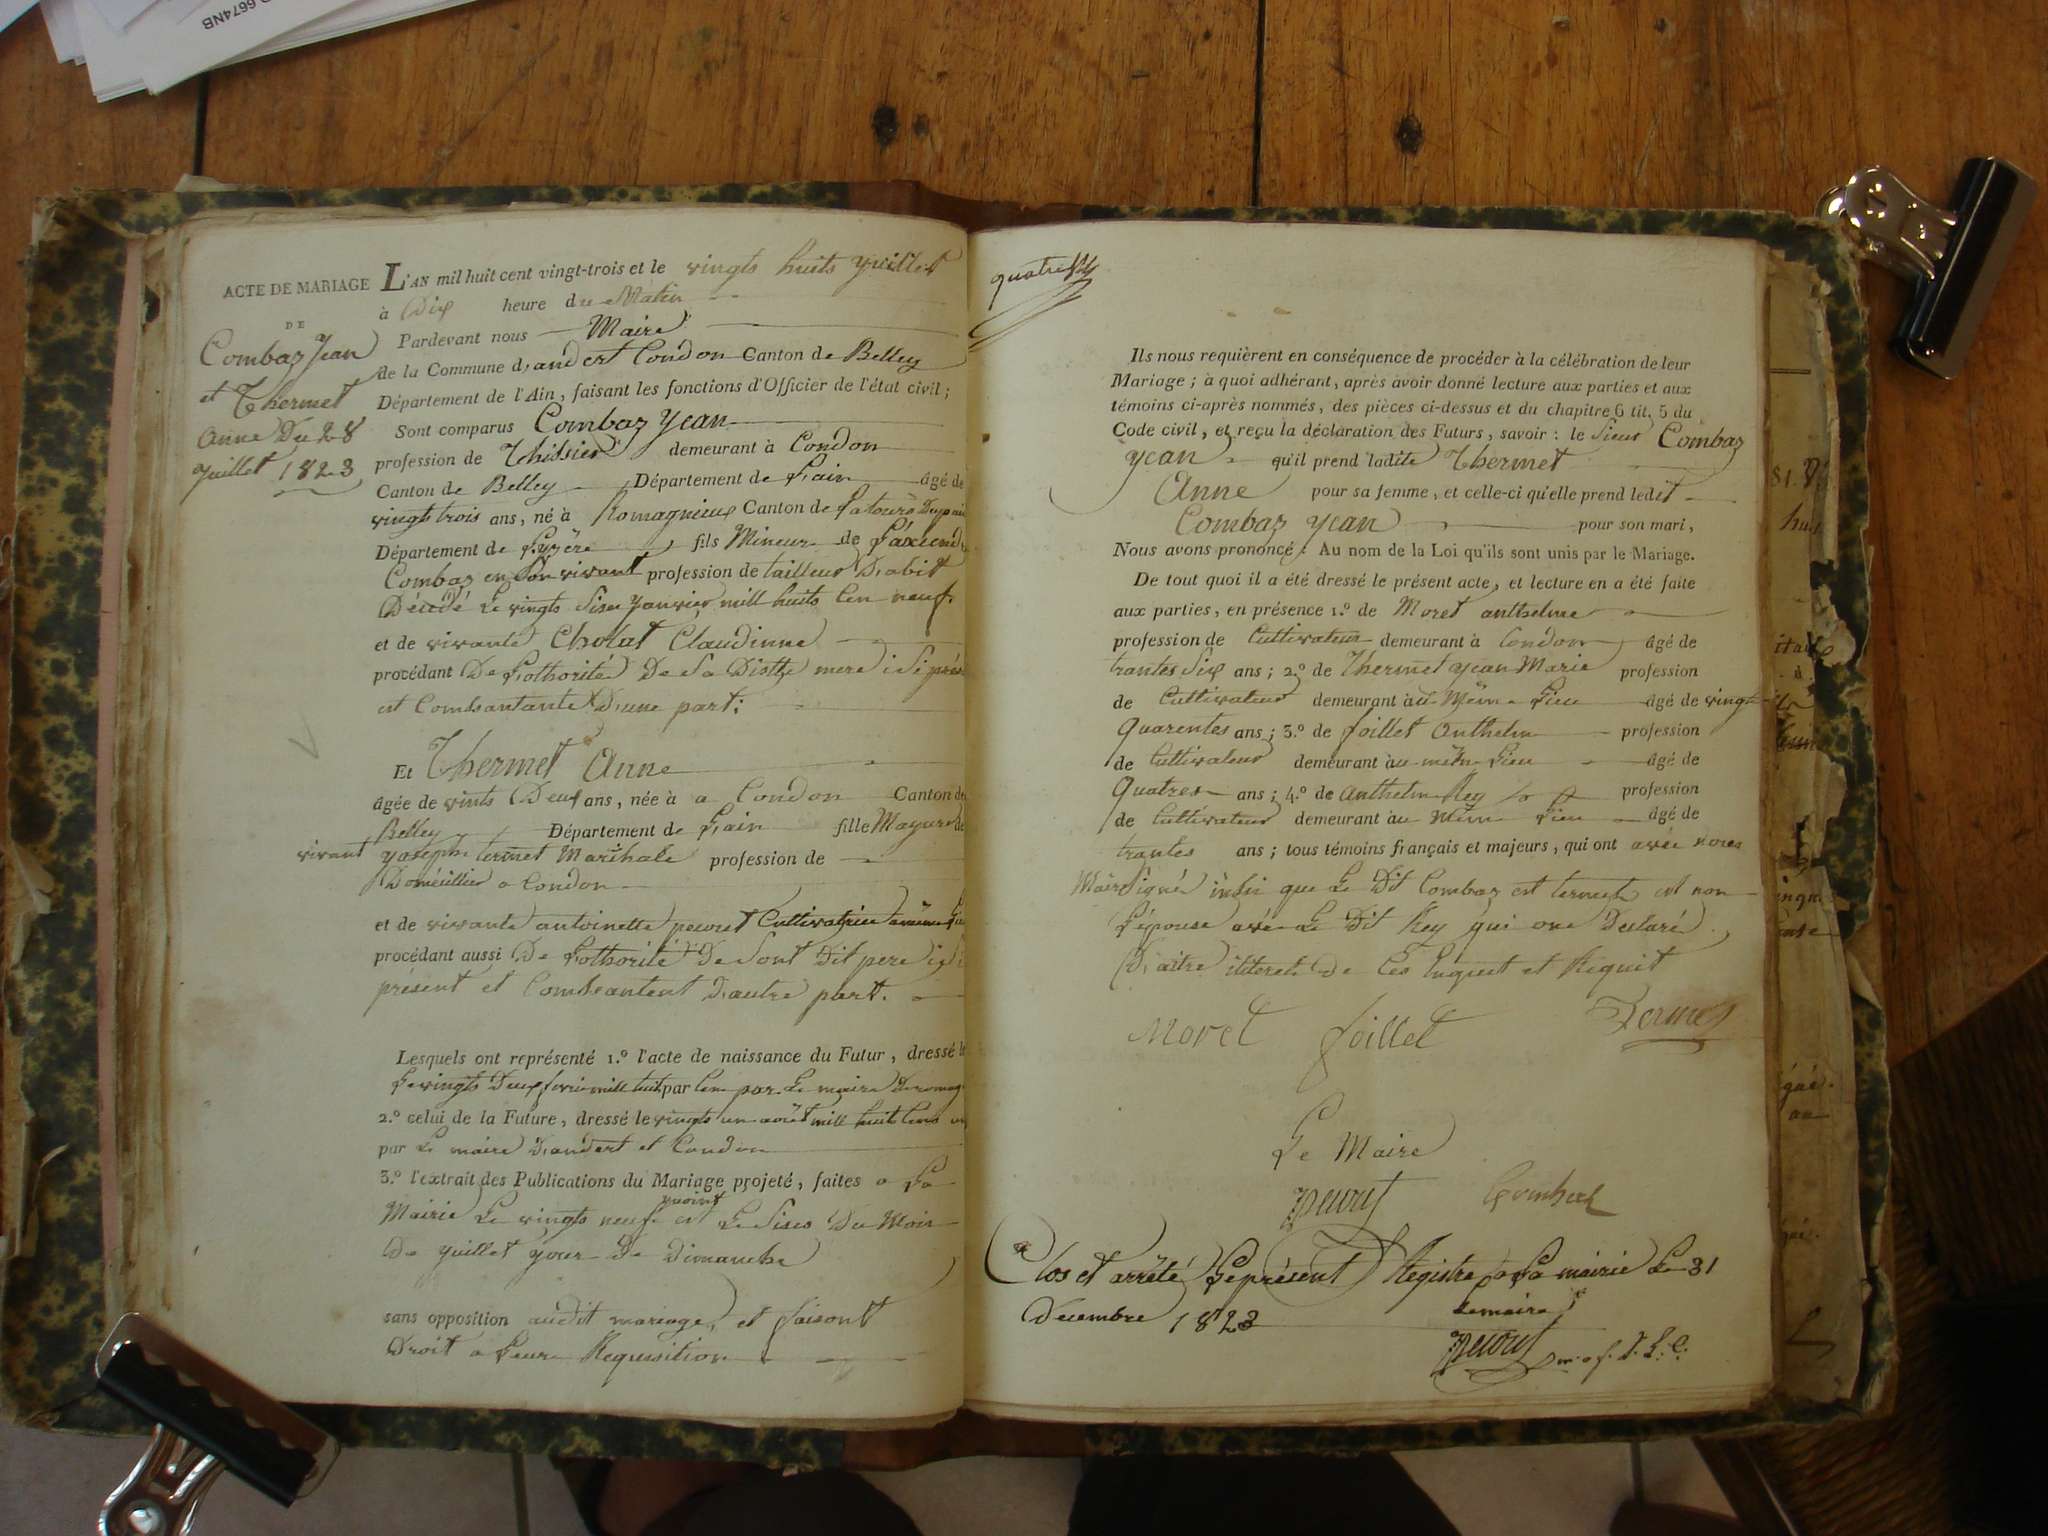 6674NB
ACTE DE MARIAGE
DE
Combaz Jean
et Thermet
Anne Du 28
Juillet 1823
L'AN mil huit cent vingt-trois et le vingts huits Juillet
à Dix heure du Matin
Pardevant nous Maire
de la Commune d'andert Condon Canton de Belley
Département de l'Ain, faisant les fonctions d'Officier de l'état civil;
Sont comparus Combaz Jean
profession de Thissier demeurant à Condon
Canton de Belley Département de L'ain âgé de
vingts trois ans, né à Romagnieux Canton de
Département de Lyzère fils Mineur de
Combaz en Son vivant profession de tailleur D'abit
Décédé Le vingts Sises Janvier mill huits Cen neuf
et de vivante Cholat Claudinne
procédant De L'othorité De Sa Ditte mere
et Comsantante D'une part:
Et Thermet Anne
âgée de vints Deux ans, née à a Condon Canton de
Belley Département de L'ain fille Mayure de
vivant Joseph termet Marihale profession de
Domeillier a Condon
et de vivante antoinette peront Cultivatrice
procédant aussi De L'othorité De Sont Dit pere
présent et Comsantent D'autre part.
Lesquels ont représenté 1.º l'acte de naissance du Futur, dressé le
Le vingts Deux mill huit par Le maire
2.º celui de la Future, dressé le vingts un août mill huit Cens
par Le maire D'andert et Condon
3.º l'extrait des Publications du Mariage projeté, faites a La
Mairie Le vingts neuf et Le Sises Du Mois
De Juillet jour De Dimanche
sans opposition audit mariage, et faisont
Droit a Leur Requisition
Ils nous requièrent en conséquence de procéder à la célébration de leur
Mariage; à quoi adhérant, après avoir donné lecture aux parties et aux
témoins ci-après nommés, des pièces ci-dessus et du chapitre 6 tit. 5 du
Code civil, et reçu la déclaration des Futurs, savoir: le Sieur Combaz
Jean qu'il prend ladite Thermet
Anne pour sa femme, et celle-ci qu'elle prend ledit
Combaz Jean pour son mari,
Nous avons prononcé: Au nom de la Loi qu'ils sont unis par le Mariage.
De tout quoi il a été dressé le présent acte, et lecture en a été faite
aux parties, en présence 1.º de Moret anthelme
profession de Cultivateur demeurant à Condon âgé de
trantes Six ans; 2.º de Thermet Jean Marie profession
de Cultivateur demeurant au Même Lieu âgé de vingt
Quarentes ans; 3.º de foillet Anthelm profession
de Cultivateur demeurant au même Lieu âgé de
Quatres ans; 4.º de Anthelm Rey profession
de Cultivateur demeurant au Même Lieu âgé de
trantes ans; tous témoins français et majeurs, qui ont avec nous
Maire Signé insi que Le Dit Combaz et termet et non
L'épouse avec Le Dit Rey qui one Declaré
D'aitre iliteret De Ces Enquest et Requit
Moret foillet Termet
Le Maire
peront Combaz
Clos et arrêté Le présent Registre a La mairie Le 31
Decembre 1823
Le maire
peront